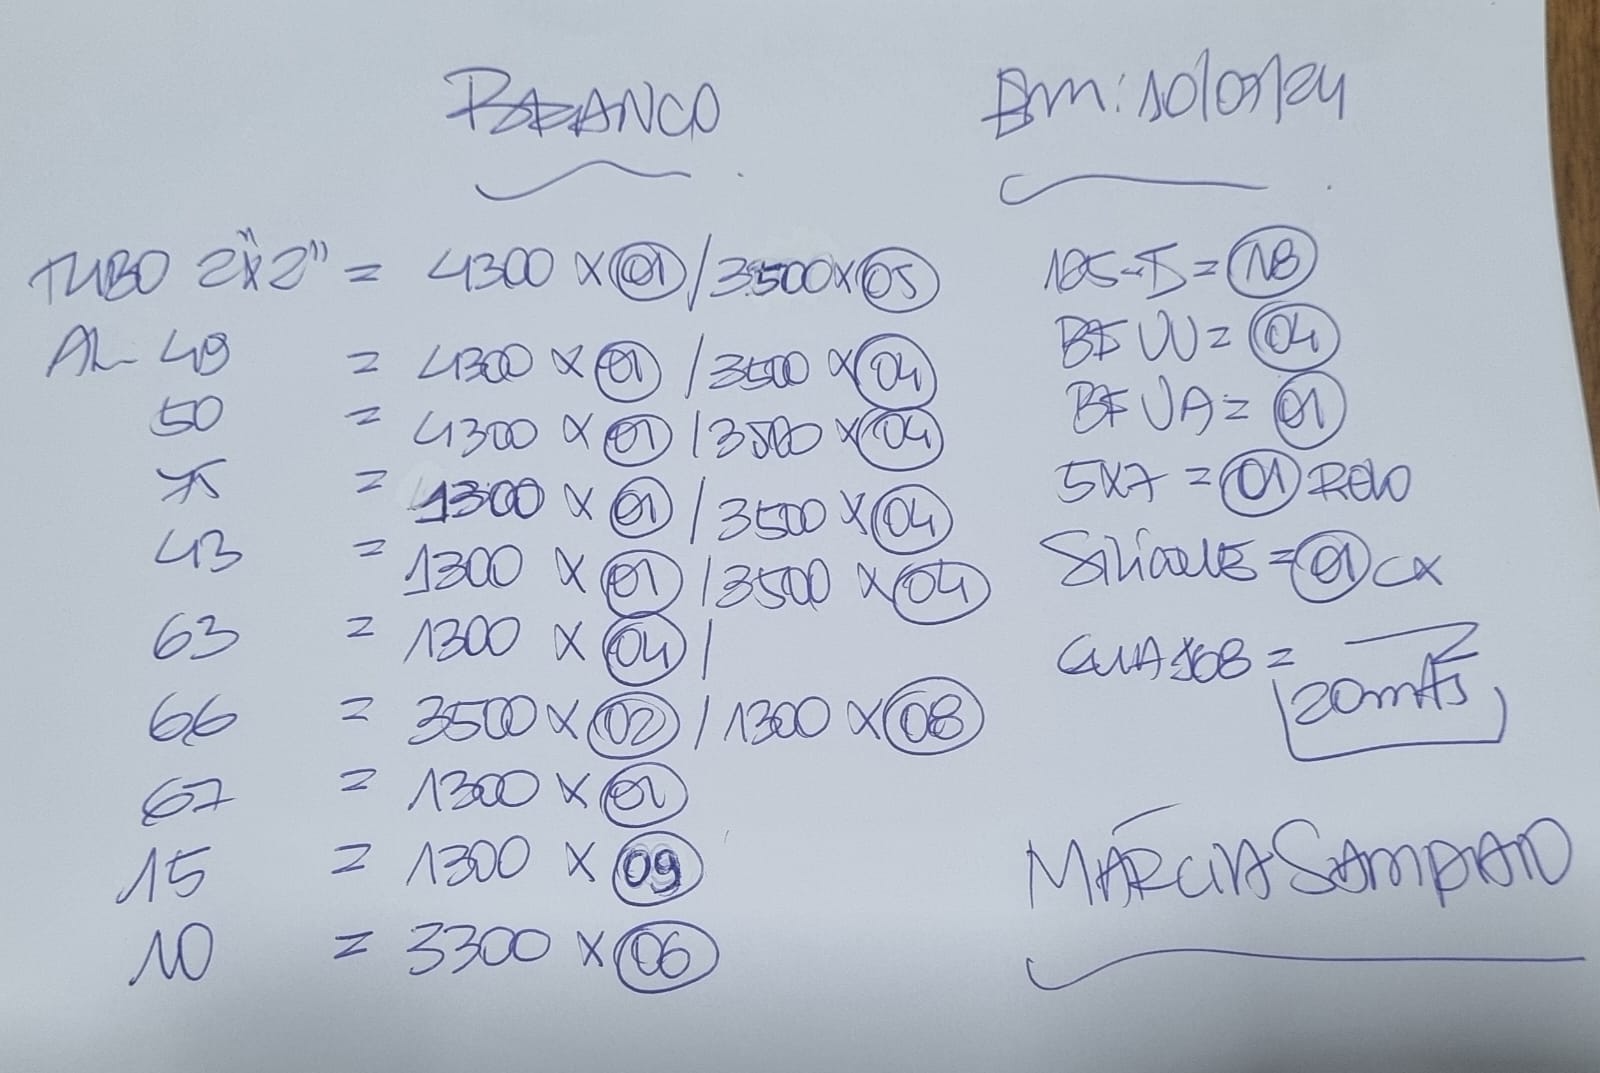 BRANCO
Em: 10/05/24
TUBO 2"x2" = 4300 x 01 / 3500 x 05
AL 49 = 4300 x 01 / 3500 x 04
50 = 4300 x 01 / 3500 x 04
75 = 1300 x 01 / 3500 x 04
43 = 1300 x 01 / 3500 x 04
63 = 1300 x 04 /
66 = 3500 x 02 / 1300 x 08
67 = 1300 x 01
15 = 1300 x 09
10 = 3300 x 06
185-5 = 18
BF UU = 04
BF UA = 01
5x7 = 01 Rolo
Silicone = 01 CX
= 20mts
MÁRCIA SAMPAIO